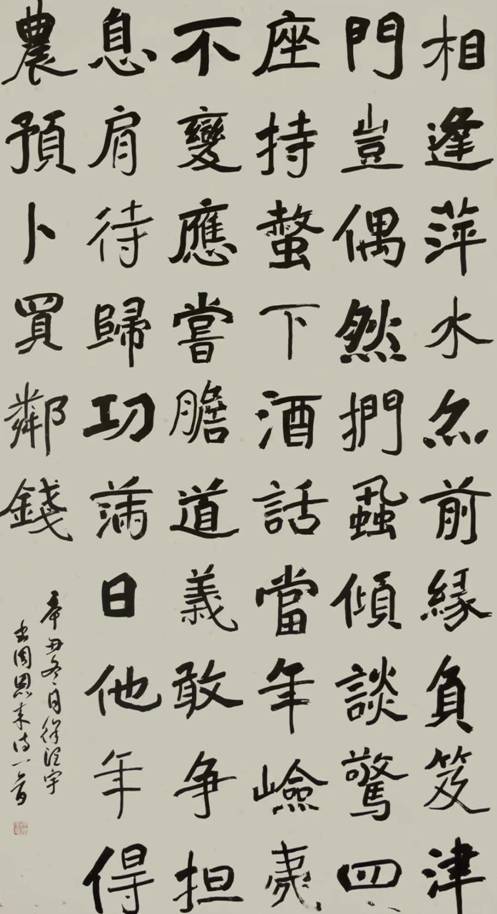 相逢萍水亦前緣負笈津
門豈偶然捫蝨傾談驚四
座持螯下酒話當年嶮夷
不變應嘗膽道義敢争担
息肩待歸功滿日他年得
農預卜買鄰錢
辛丑冬月徐宇
书周恩来诗一首